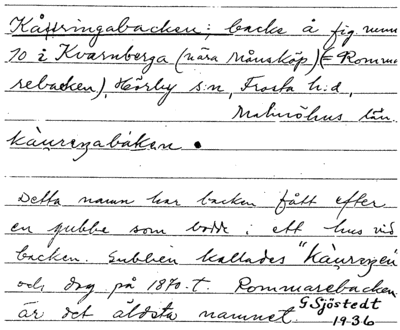 Kåuringabacken; backe å fig. num
70 i Kvarnberga (nära Månsköp) (= Romma
rebacken), Hörby s:n, Frosta h:d,
Malmöhus län.
kàurezabáken.
Detta namn har backen fått efter
en gubbe som bodde i ett hus vid
backen. Gubben kallades "kàurezen"
och dog på 1870-t. Rommarebacken
är det äldsta namnet.
G Sjöstedt
1936